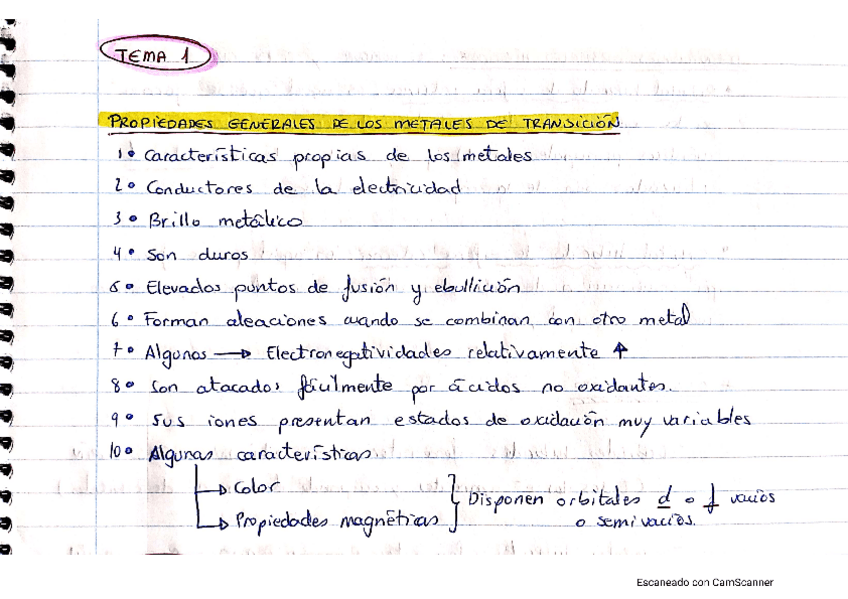 TEMA 1
PROPIEDADES GENERALES DE LOS METALES DE TRANSICIÓN
1º Características propias de los metales
2º Conductores de la electricidad
3º Brillo metálico
4º Son duros
5º Elevados puntos de fusión y ebullición
6º Forman aleaciones cuando se combinan con otro metal
7º Algunos → Electronegatividades relativamente ↑
8º Son atacados fácilmente por ácidos no oxidantes.
9º Sus iones presentan estados de oxidación muy variables
10º Algunas características
↳ Color
↳ Propiedades magnéticas } Disponen orbitales d o f vacíos
o semivacíos.
Escaneado con CamScanner